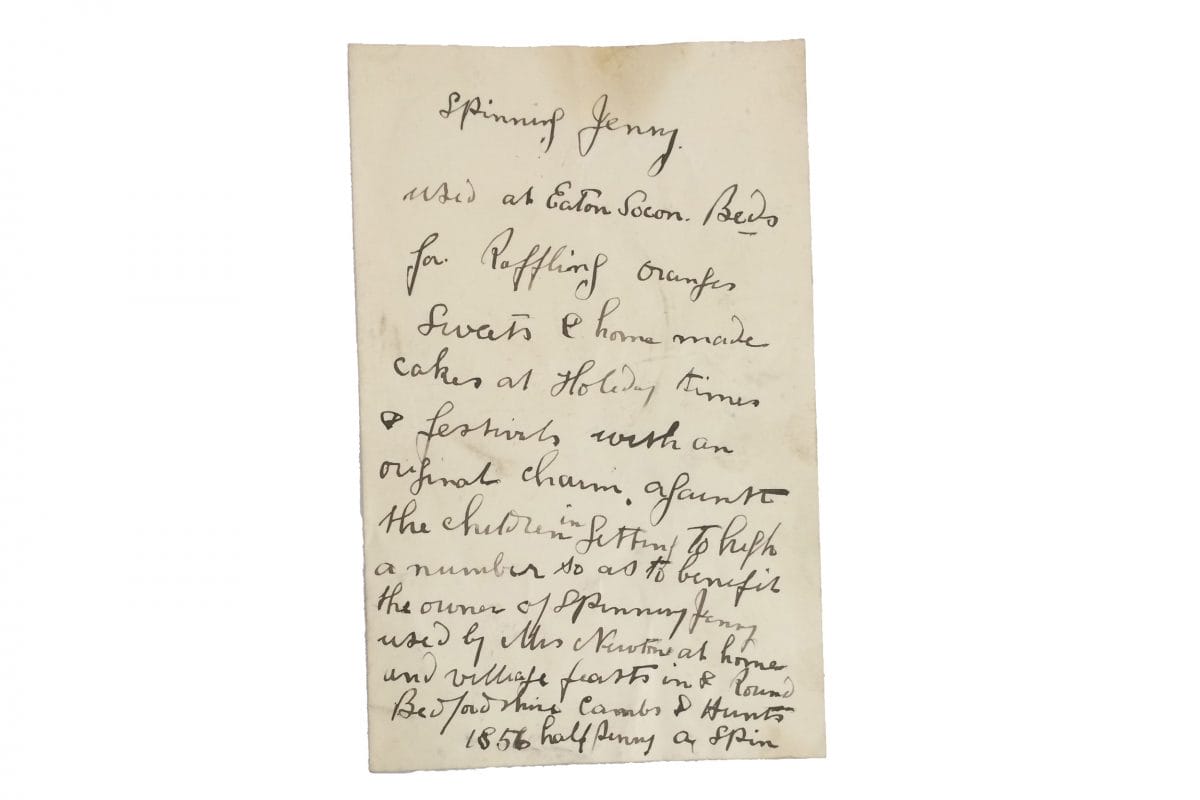 Spinning Jenny.
used at Eaton Socon. Beds
for Raffling oranges
Sweets & home made
cakes at Holiday times
& festivals with an
original charm, against
the children in getting to high
a number so as to benefit
the owner of Spinning Jenny
used by Mrs Newton at home
and village feasts in & Round
Bedfordshire Cambs & Hunts
1856 half penny a Spin